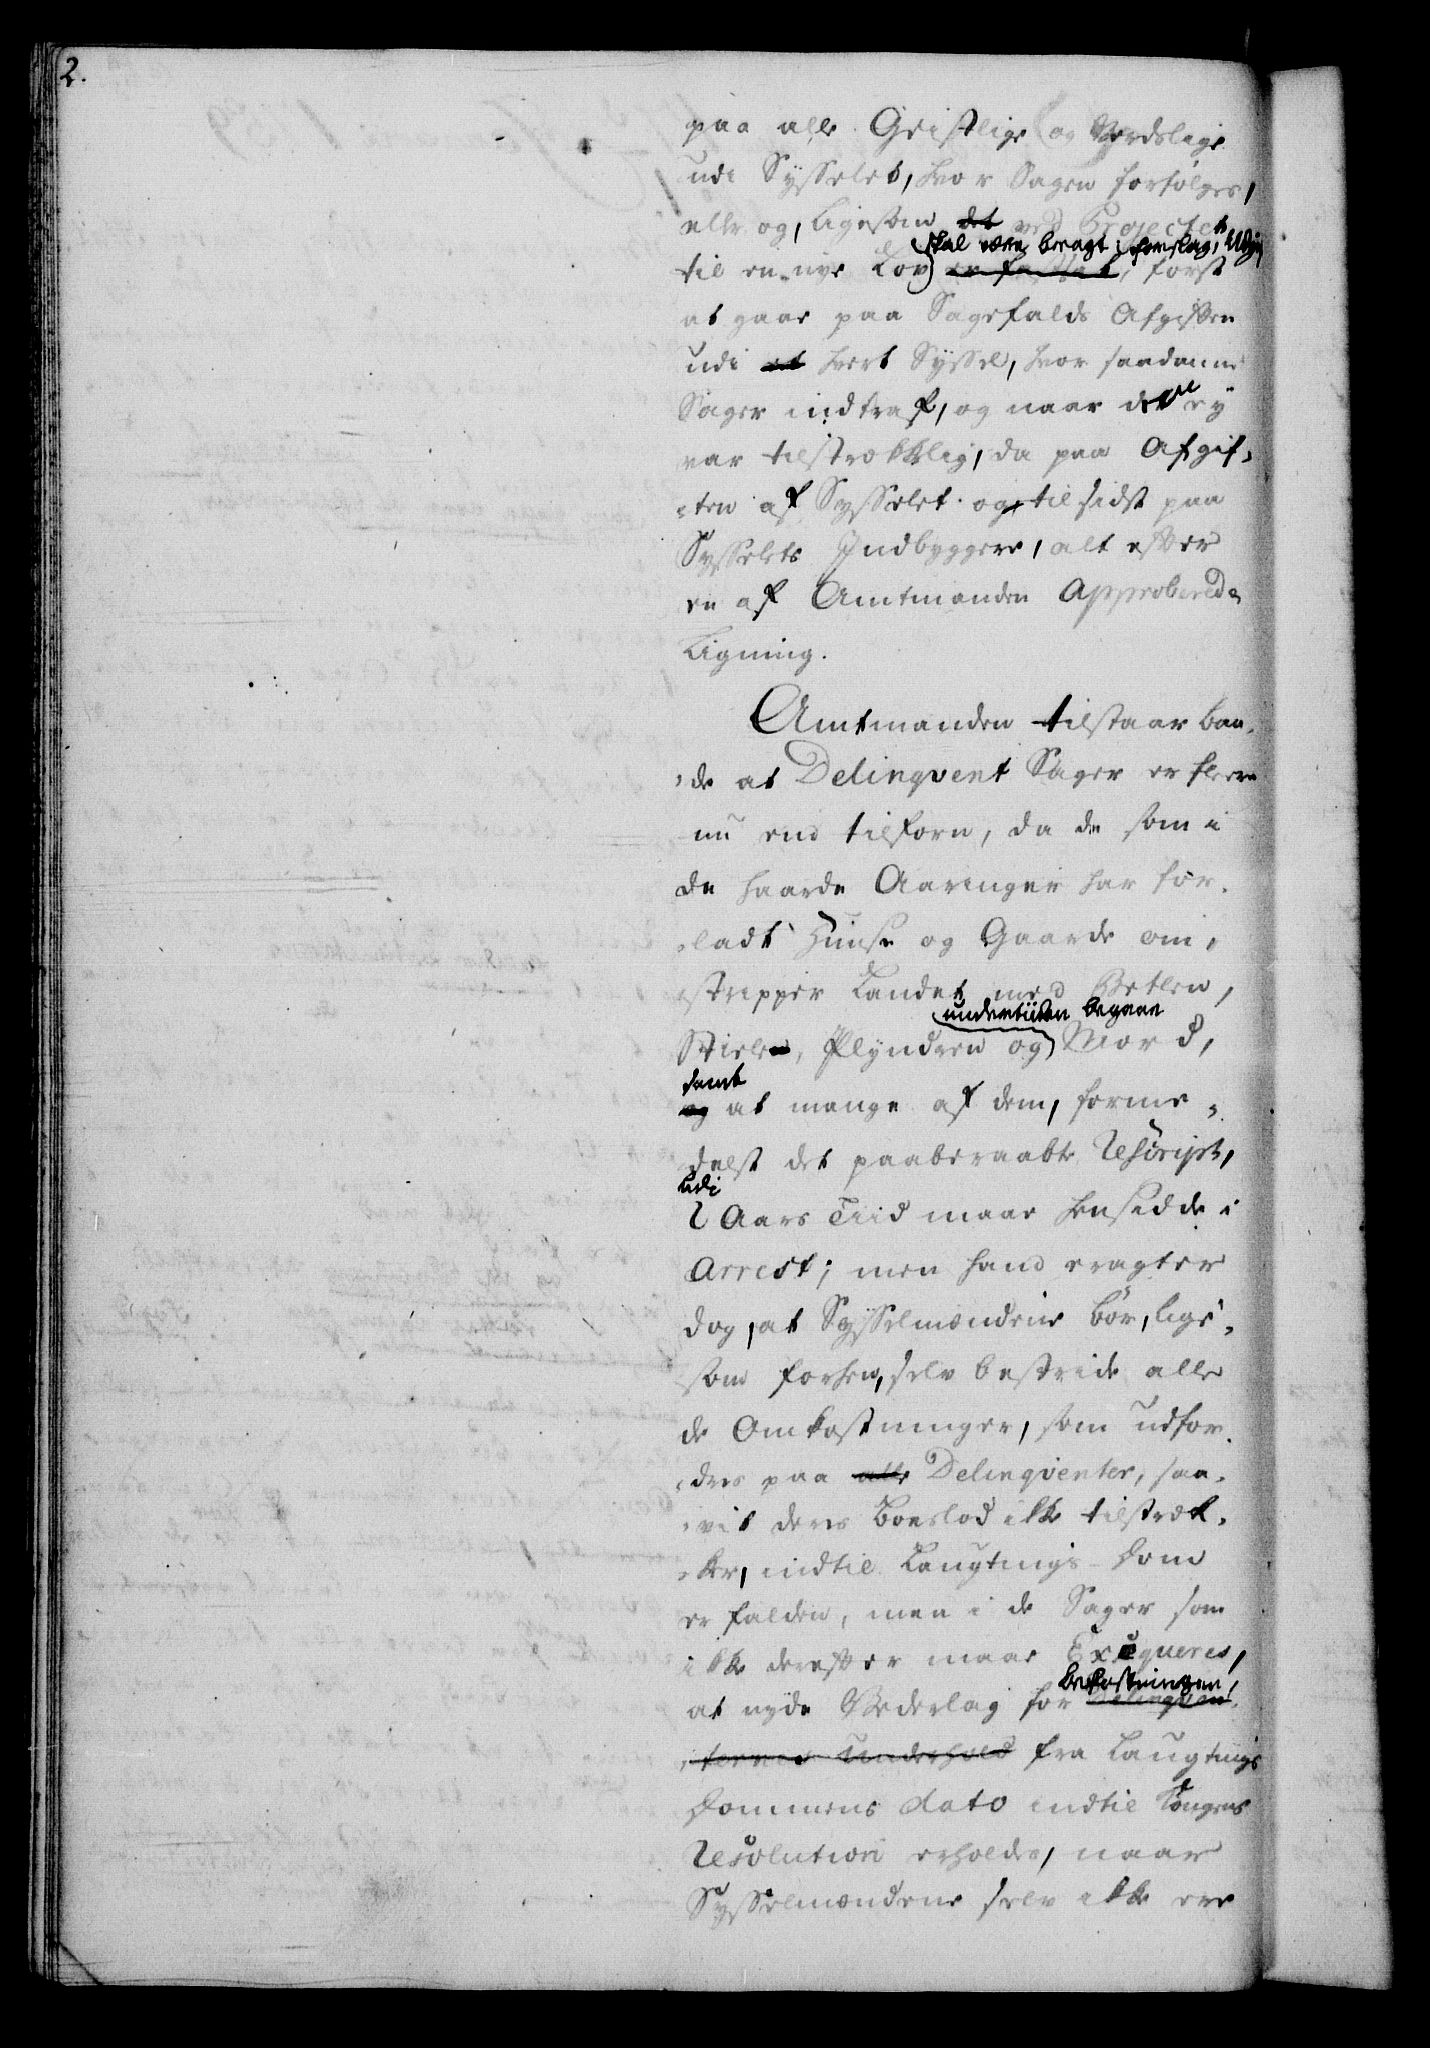 2.
paa alle Geistlige og Verdslige
udi Sysselet, hvor Sagen forfølges,
eller og, ligesom det ved Projectet
skal være bragt i forslag,
til en nye Lov er fastsat, først
at gaae paa Sagefalds Afgiften
udi et hvert Syssel, hvor saadanne
Sager indtraf, og naar den ey
var tilstrækkelig, da paa Afgif-
ten af Sysselet og til sidst paa
Sysselets Indbyggere, alt efter
en af Amtmanden Approberede
Ligning.
Amtmanden tilstaar baa-
de at Delinqvent Sager er fleere
nu end tilforn, da de som i
de haarde Aaringer har for-
ladt Huuse og Gaarde om-
stripper Landet med Betlen,
undertiiden begaae
Stielen, Plyndren og Mord,
samt
og at mange af dem, forme-
delst det paaberaabte Rescript,
udi
2 Aars Tiid maae hensidde i
Arrest; men hand eragter
dog, at Sysselmændene bør, lige-
som forhen, selv bestride alle
de Omkostninger, som udfor-
dres paa alle Delinqventer, saa-
vit deres Boeslod ikke tilstræk-
ker, indtil Laugtings-Dom
er falden, men i de Sager som
ikke derefter maae Exeqveres,
bekostningen,
at nyde Vederlag for Delinqven-
ternes Underhold fra Laugtings
Dommens dato indtil Kongens
Resolution erholdes, naar
Sysselmændene selv ikke ere